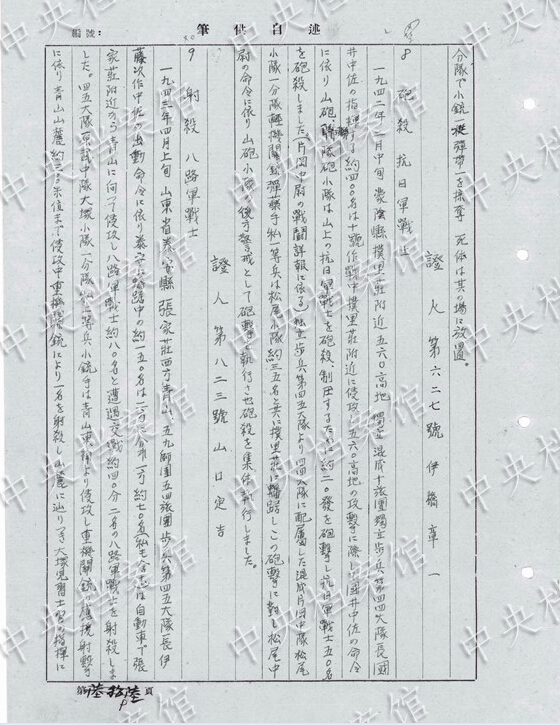 述自供筆
編號：
分隊で小銃一挺彈帶一を掠奪 死体は其の場に放置。
證人第六二七號 伊橋章一
8 砲殺 抗日軍戰士
一九四二年一月中旬 蒙陰縣撲里莊附近 五六〇高地 獨立混成十旅團獨立步兵第四四大隊長國
井中佐の指揮する約四〇〇名は十號作戰中撲里莊附近に侵攻 五六〇高地の攻擊に際し 國井中佐の命令
に依り山砲聯隊砲小隊は山上の抗日軍戰士を砲殺、制圧するために約二〇發を砲擊し抗日軍戰士五〇名
を砲殺しました（片岡中尉の戰鬪詳報に依る）獨立步兵第四五大隊より四四大隊に配屬した混成片岡中隊松尾
小隊一分隊輕機關銃彈藥手私一等兵は松尾小隊約三五名と共に撲里莊に 此の砲擊に對し松尾中
尉の命令に依り山砲小隊の後方警戒として砲擊を執行させ砲殺を集体執行しました。
證人第八二三號 山口定吉
9 射殺 八路軍戰士
一九四三年四月上旬 山東省 縣張家莊西方青山、五九師團五四旅團步兵第四五大隊長伊
藤次作中佐の出動命令に依り 中の約一五〇名は二方に分れ一方約七〇名（私も含む）は自動車で張
家莊附近から青山に向って侵攻し八路軍戰士約八〇名と遭遇交戰約四〇分 二名の八路軍戰士を射殺しま
した。四五大隊 中隊大塚小隊一分隊私一等兵小銃手は青山東側より侵攻し重機關銃の應援射擊
に依り青山山麓約三〇〇米位まで侵攻中重機關銃により一名を射殺し山麓に辿りつき大塚見習士官の指揮に
第陸拾陸頁